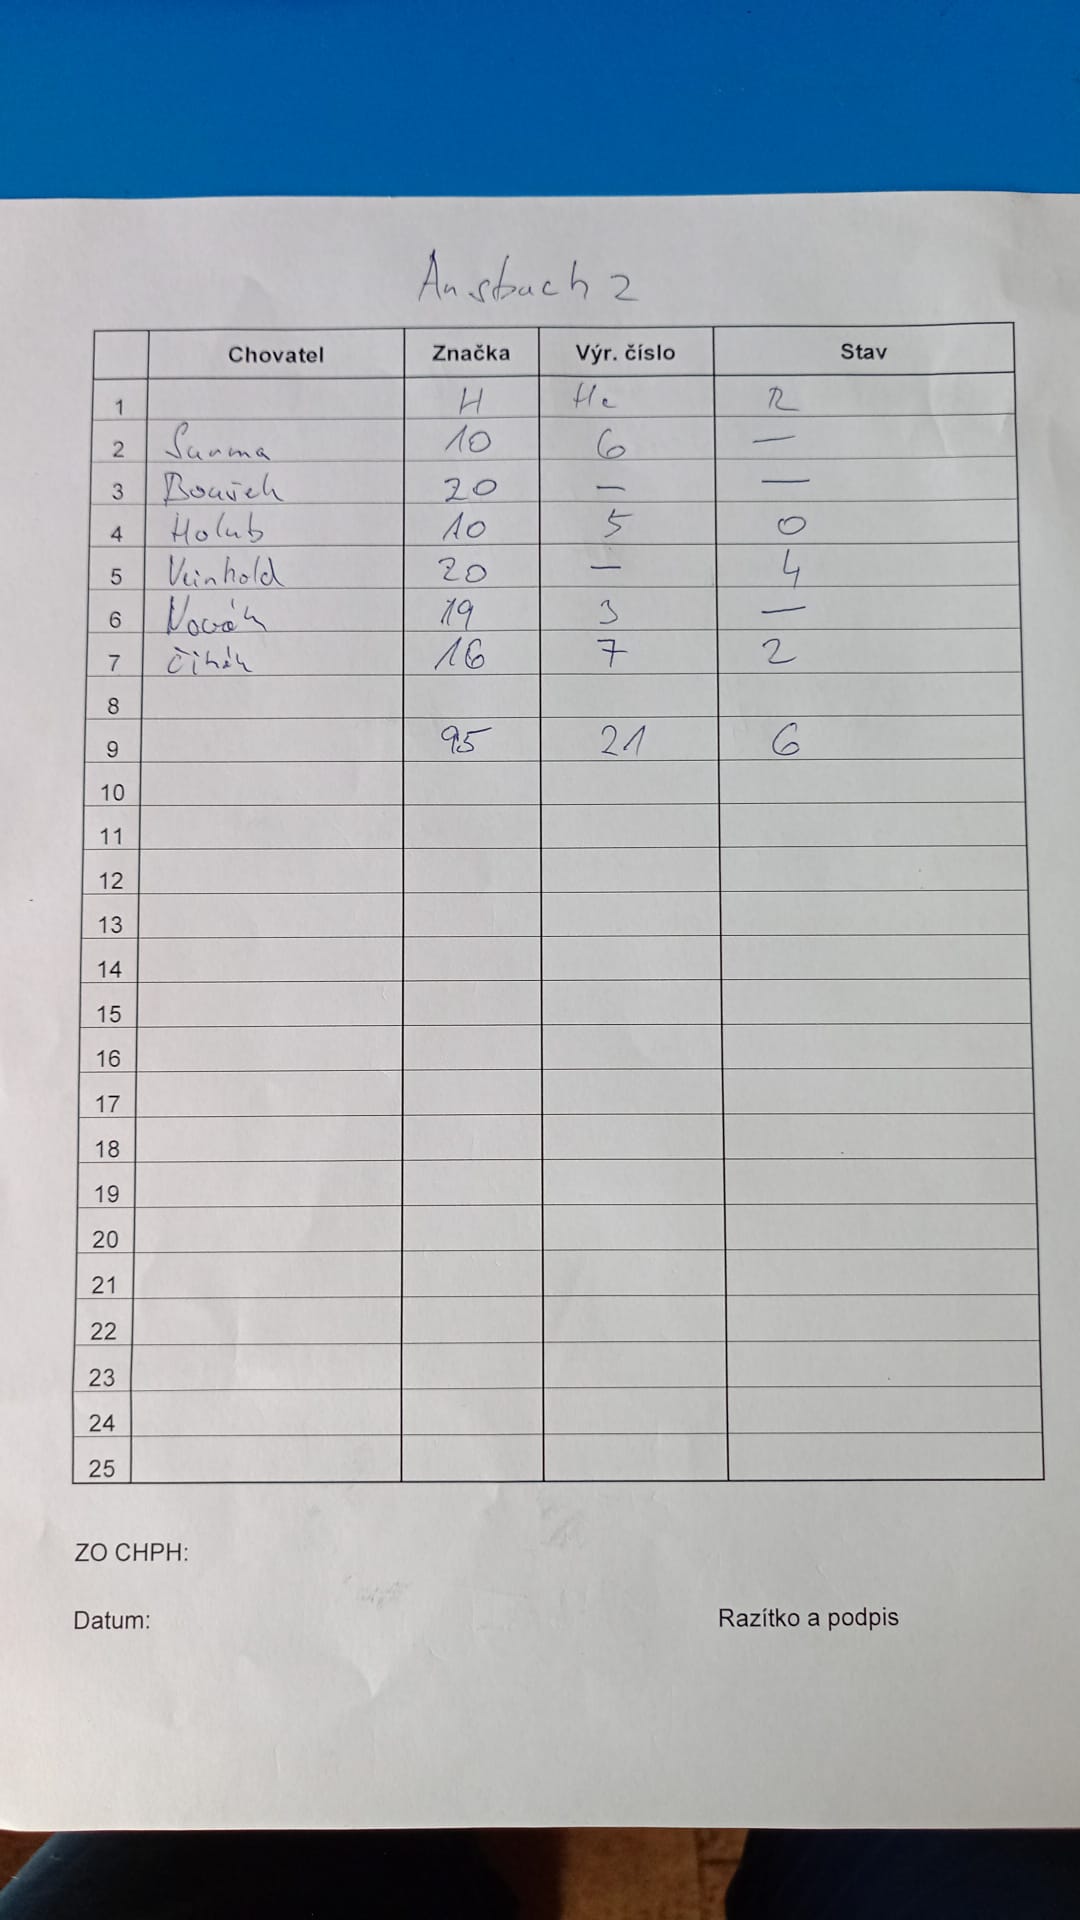 Ansbach 2
Chovatel Značka Výr. číslo Stav
1 H He R
2 Surma 10 6 —
3 Bouček 20 — —
4 Holub 10 5 0
5 Veinhold 20 — 4
6 Novák 19 3 —
7 Čihák 16 7 2
8
9 95 21 6
10
11
12
13
14
15
16
17
18
19
20
21
22
23
24
25
ZO CHPH:
Datum: Razítko a podpis